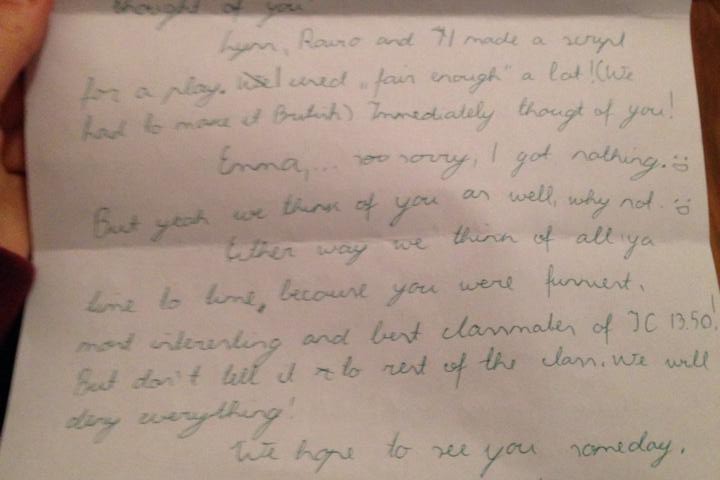 thought of you
Lynn, Rauro and I made a script
for a play. We used „fair enough" a lot! (We
had to make it British) Immediately thougt of you!
Emma,... soo sorry, I got nothing. :)
But yeah we think of you as well, why not. :)
Either way we think of all ya
time to time, because you were funniest,
most interesting and best classmates of IC 13.50!
But don't tell it to rest of the class. We will
deny everything!
We hope to see you someday.